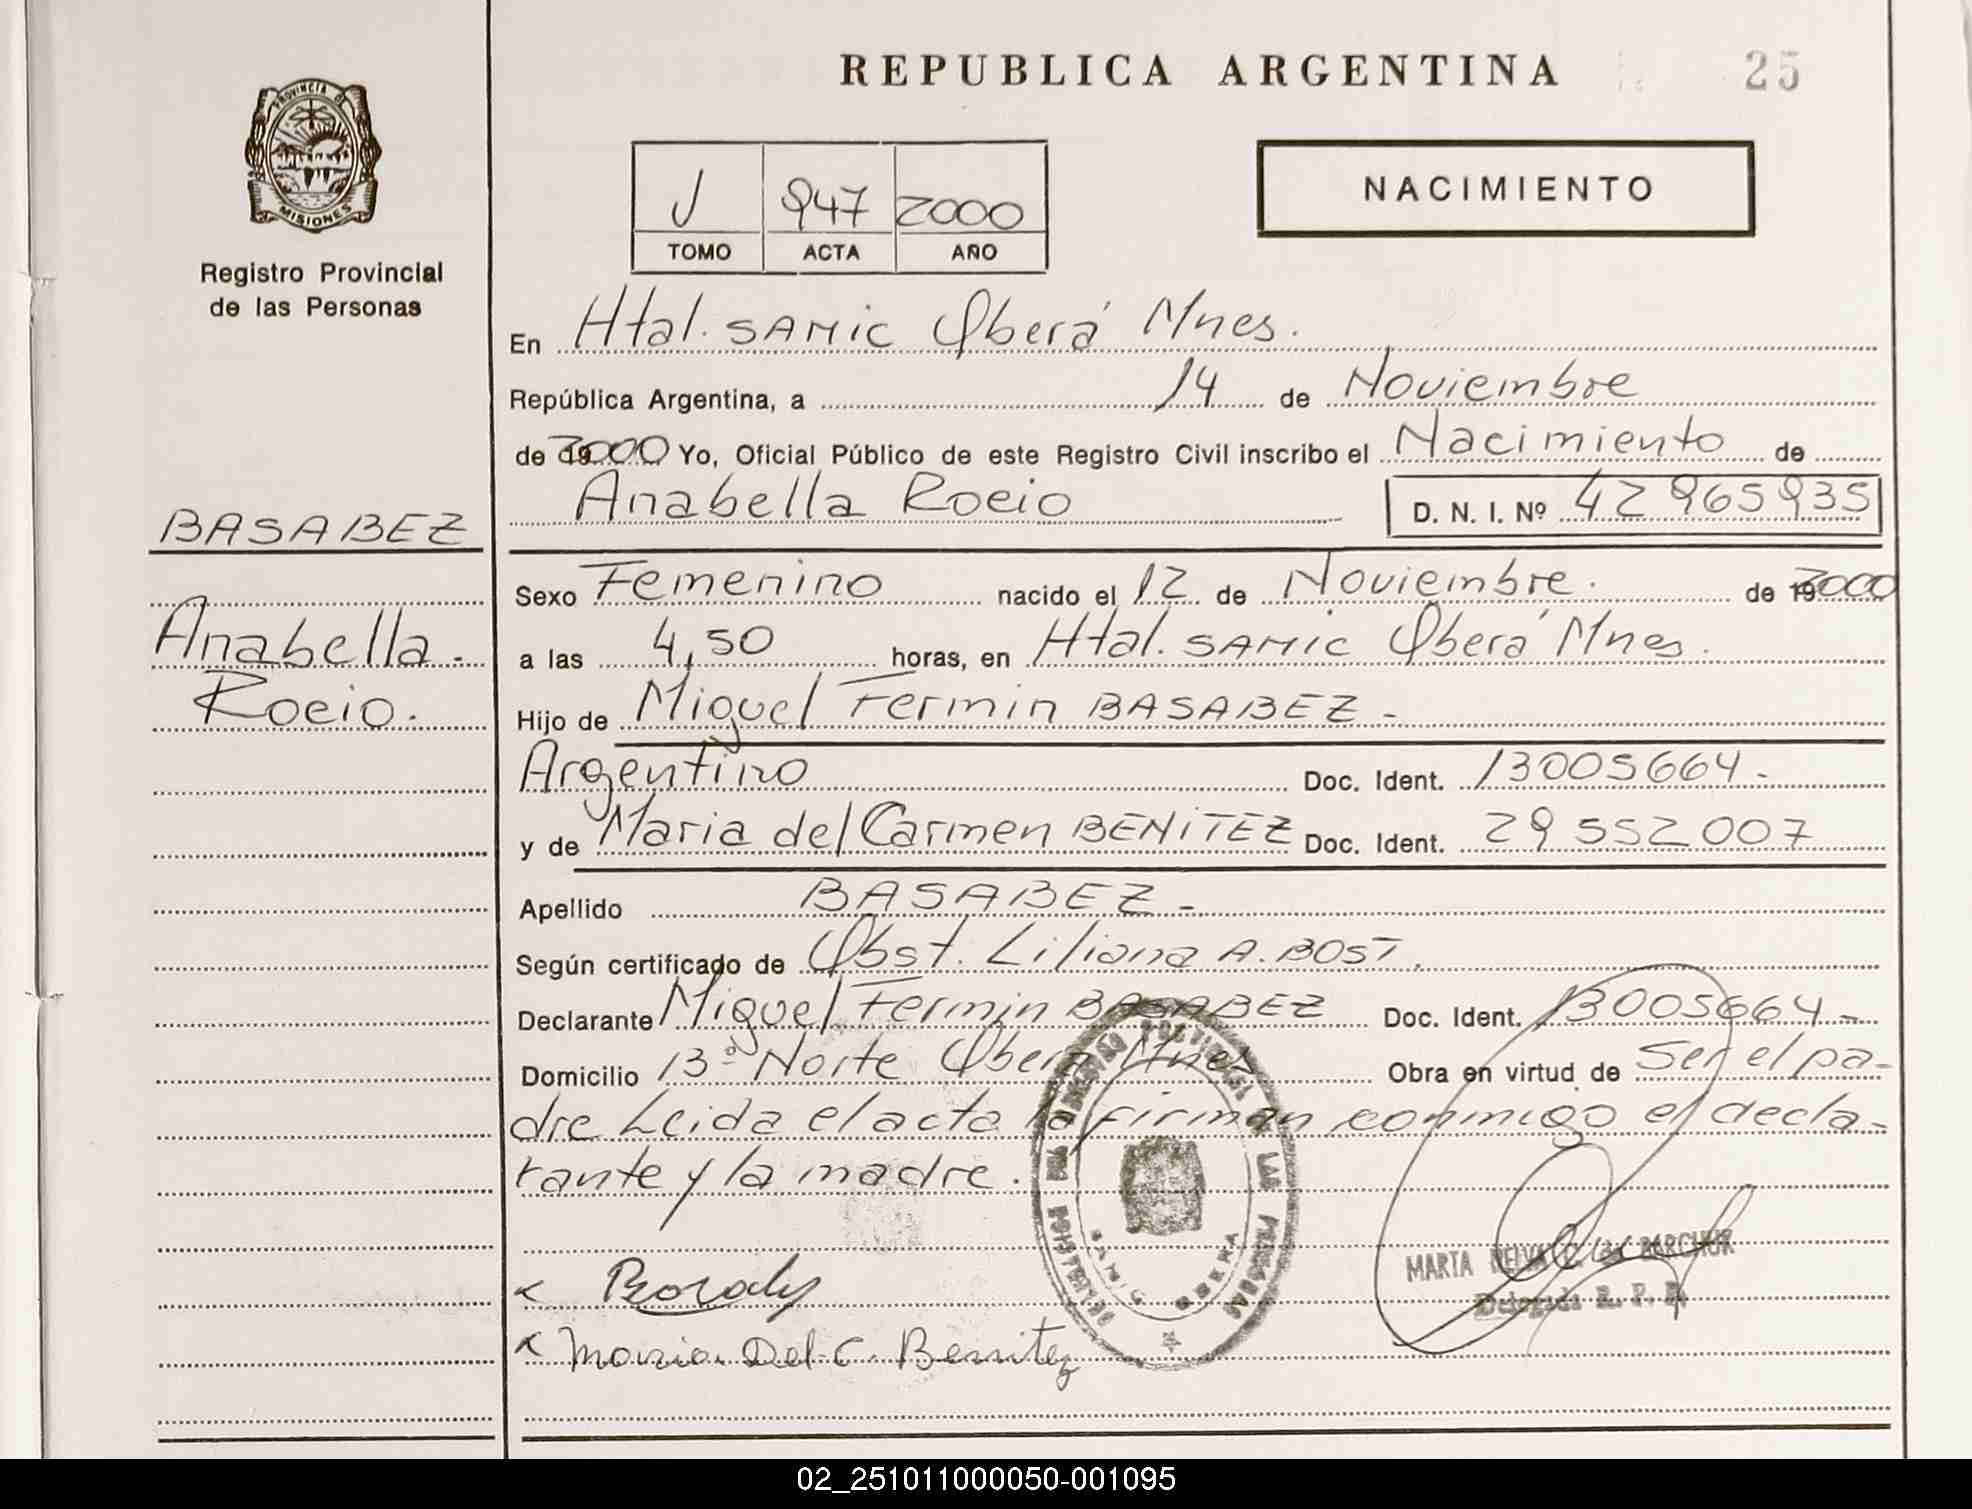 REPUBLICA ARGENTINA
25
PROVINCIA DE
MISIONES
Registro Provincial
de las Personas
NACIMIENTO
J 947 2000
TOMO ACTA AÑO
En Htal. SAMIC Oberá Mnes.
República Argentina, a 14 de Noviembre
de 2000 Yo, Oficial Público de este Registro Civil inscribo el Nacimiento de
Anabella Rocio D. N. I. Nº 42965935
BASABEZ
Anabella.
Rocio.
Sexo Femenino nacido el 12 de Noviembre. de 2000
a las 4,50 horas, en Htal. SAMIC Oberá Mnes.
Hijo de Miguel Fermin BASABEZ -
Argentino Doc. Ident. 13005664.
y de Maria del Carmen BENITEZ Doc. Ident. 29 552 007
Apellido BASABEZ -
Según certificado de Obst. Liliana A. BOST.
Declarante Miguel Fermin BASABEZ Doc. Ident. 13005664 -
Domicilio 13º Norte Oberá Mnes Obra en virtud de Ser el pa-
dre Leida el acta la firman conmigo el decla-
rante y la madre.
LAS PERSONAS
OBERA
MARTA
Delegada R. P. P.
Maria Del C. Benitez
02_251011000050-001095